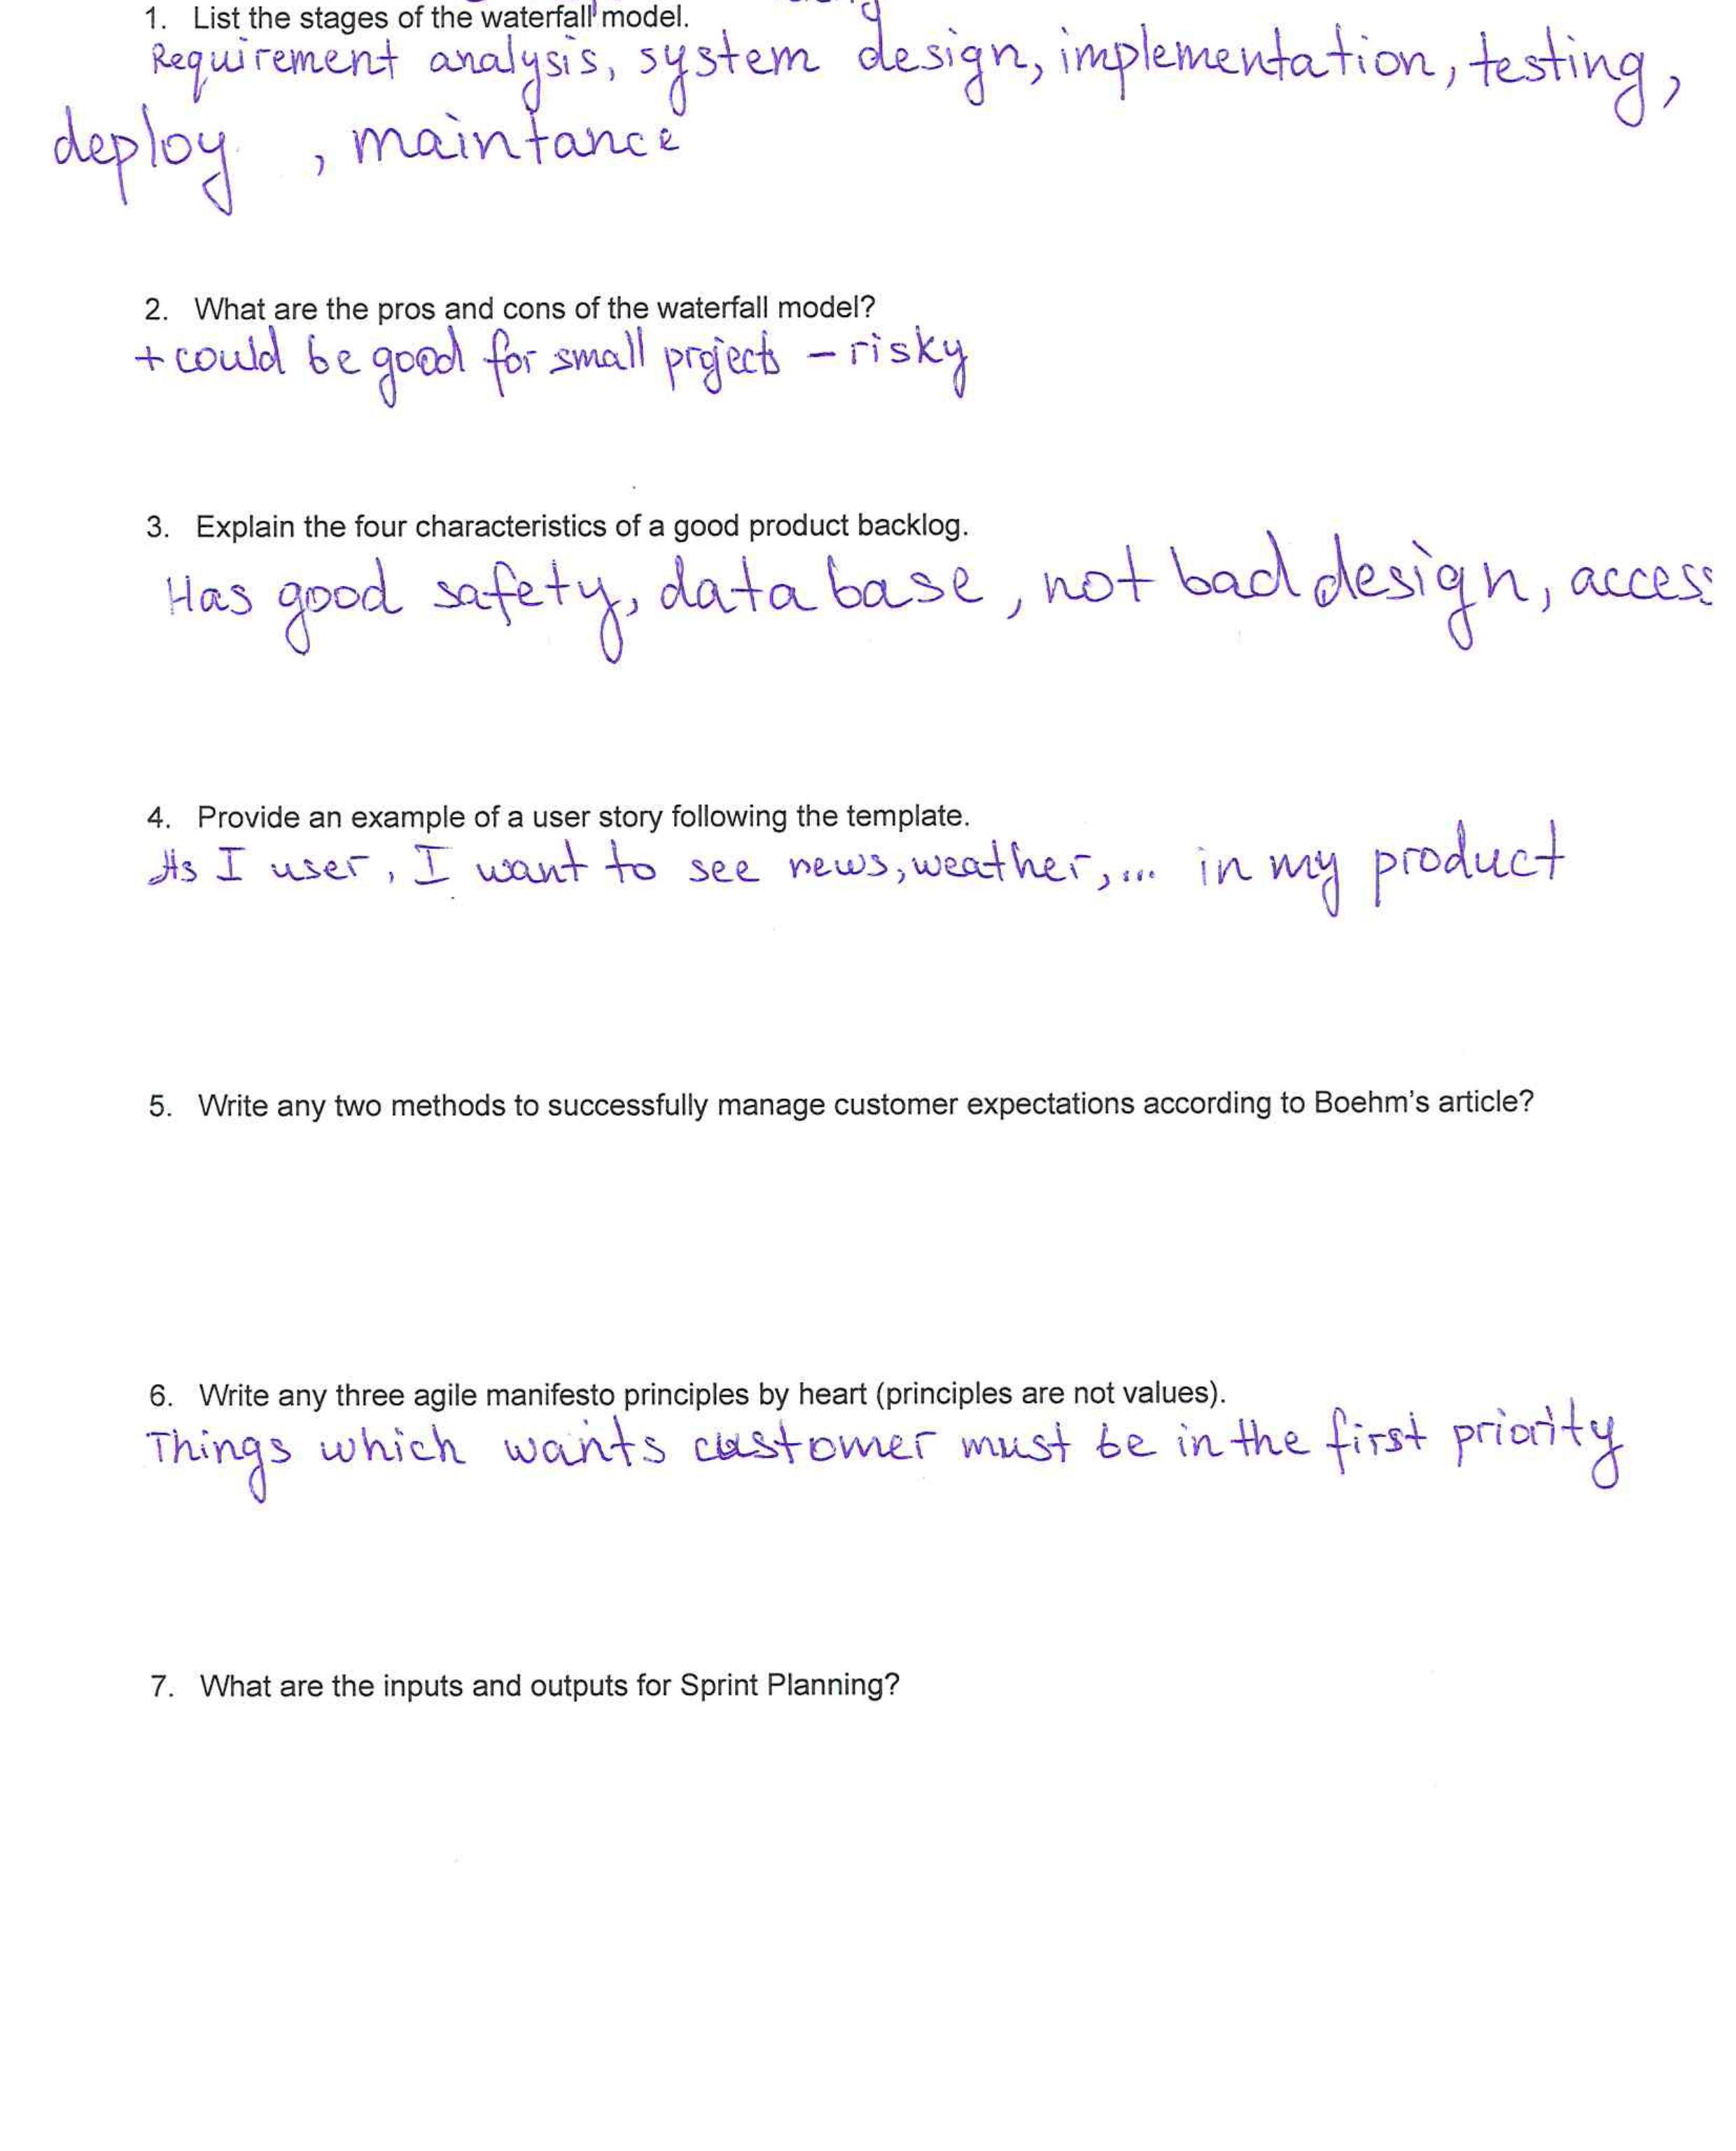 1. List the stages of the waterfall model.
Requirement analysis, system design, implementation, testing,
deploy , maintance
2. What are the pros and cons of the waterfall model?
+ could be good for small projects – risky
3. Explain the four characteristics of a good product backlog.
Has good safety, data base, not bad design, access
4. Provide an example of a user story following the template.
As I user, I want to see news, weather, ... in my product
5. Write any two methods to successfully manage customer expectations according to Boehm's article?
6. Write any three agile manifesto principles by heart (principles are not values).
Things which wants customer must be in the first priority
7. What are the inputs and outputs for Sprint Planning?